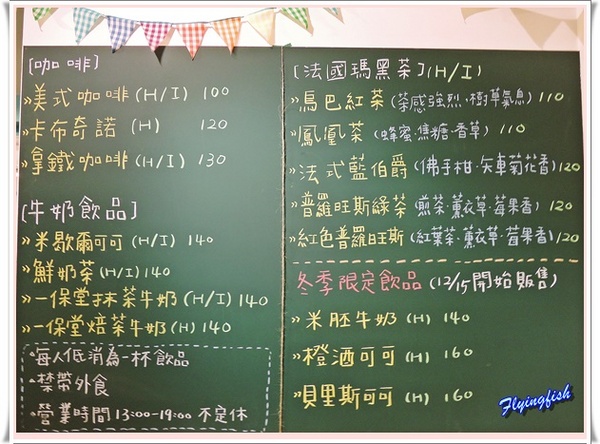 [咖啡]
»美式咖啡(H/I) 100
»卡布奇諾 (H) 120
»拿鐵咖啡(H/I) 130
[牛奶飲品]
»米歇爾可可 (H/I) 140
»鮮奶茶(H/I) 140
»一保堂抹茶牛奶 (H/I) 140
»一保堂焙茶牛奶(H) 140
·每人低消為一杯飲品
·禁帶外食
·營業時間 13:00-19:00 不定休
[法國瑪黑茶](H/I)
»烏巴紅茶(茶感強烈.樹草氣息) 110
»鳳凰茶 (蜂蜜.焦糖.香草) 110
»法式藍伯爵 (佛手柑.矢車菊花香) 120
»普羅旺斯綠茶 (煎茶.薰衣草.莓果香) 120
»紅色普羅旺斯 (紅葉茶.薰衣草.莓果香) 120
冬季限定飲品 (12/15開始販售)
»米胚牛奶 (H) 140
»橙酒可可 (H) 160
»貝里斯可可 (H) 160
Flyingfish